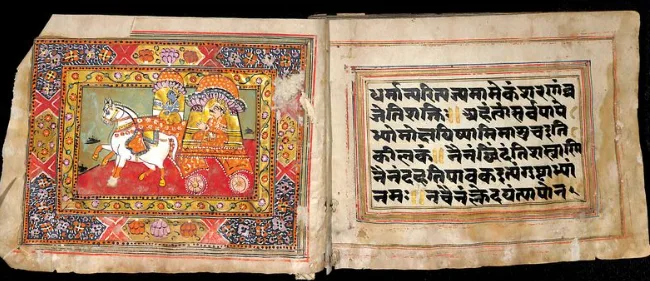 धर्मान्परित्यज्यमामेकंशरणंव्र
जेतिशक्तिः॥अहंत्वासर्वपापे
भ्योमोक्षयिष्यामिमाशुचइति
कीलकं॥नैनंछिंदंतिशस्त्राणि
नैनंदहतिपावकइत्यंगुष्ठाभ्यां
नमः॥नचैनंक्लेदयंत्यापोन